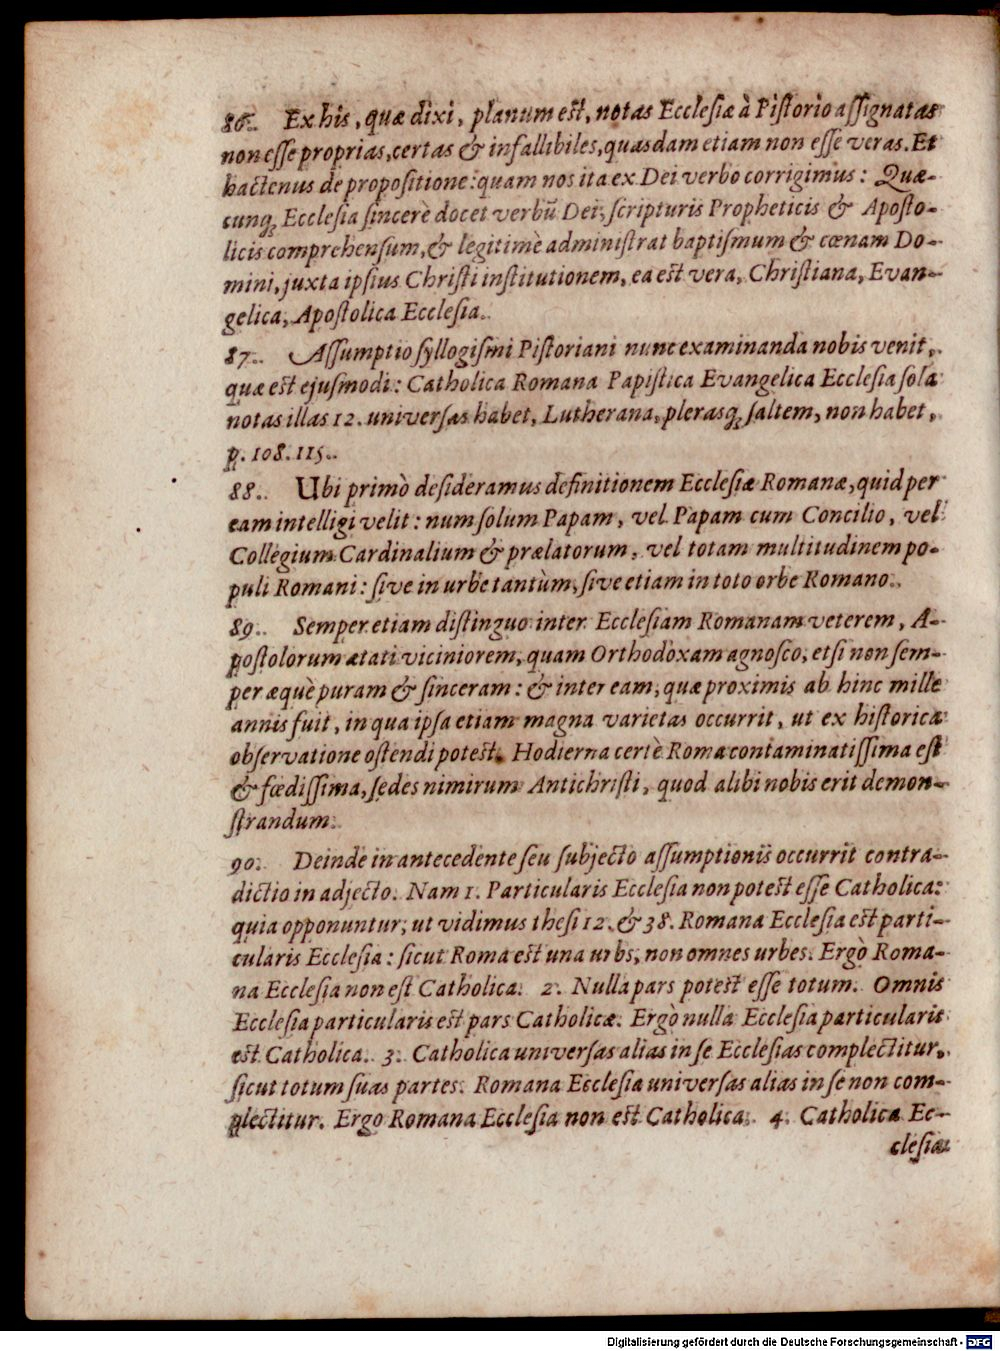 86. Ex his, quæ dixi, planum est, notas Ecclesiæ à Pistorio assignatas
non esse proprias, certas & infallibiles, quasdam etiam non esse veras. Et
hactenus de propositione: quam nos ita ex Dei verbo corrigimus: Quæ-
cunq; Ecclesia sincerè docet verbū Dei, scripturis Propheticis & Aposto-
licis comprehensum, & legitimè administrat baptismum & cœnam Do-
mini, juxta ipsius Christi institutionem, ea est vera, Christiana, Evan-
gelica, Apostolica Ecclesia.
87. Assumptio syllogismi Pistoriani nunc examinanda nobis venit,
quæ est ejusmodi: Catholica Romana Papistica Evangelica Ecclesia sola
notas illas 12. universas habet, Lutherana, plerasq; saltem, non habet,
p. 108. 115.
88. Ubi primò desideramus definitionem Ecclesiæ Romanæ, quid per
eam intelligi velit: num solum Papam, vel Papam cum Concilio, vel
Collegium Cardinalium & prælatorum, vel totam multitudinem po-
puli Romani: sive in urbe tantùm, sive etiam in toto orbe Romano.
89. Semper etiam distinguo inter Ecclesiam Romanam veterem, A-
postolorum ætati viciniorem, quam Orthodoxam agnosco, etsi non sem-
per æquè puram & sinceram: & inter eam, quæ proximis ab hinc mille
annis fuit, in qua ipsa etiam magna varietas occurrit, ut ex historica
observatione ostendi potest. Hodierna certè Roma contaminatissima est
& fœdissima, sedes nimirum Antichristi, quod alibi nobis erit demon-
strandum.
90. Deinde in antecedente seu subjecto assumptionis occurrit contra-
dictio in adjecto. Nam 1. Particularis Ecclesia non potest esse Catholica:
quia opponuntur, ut vidimus thesi 12. & 38. Romana Ecclesia est parti-
cularis Ecclesia: sicut Roma est una urbs, non omnes urbes. Ergò Roma-
na Ecclesia non est Catholica. 2. Nulla pars potest esse totum. Omnis
Ecclesia particularis est pars Catholicæ. Ergo nulla Ecclesia particularis
est Catholica. 3. Catholica universas alias in se Ecclesias complectitur,
sicut totum suas partes. Romana Ecclesia universas alias in se non com-
plectitur. Ergo Romana Ecclesia non est Catholica. 4. Catholica Ec-
clesia
Digitalisierung gefördert durch die Deutsche Forschungsgemeinschaft - DFG